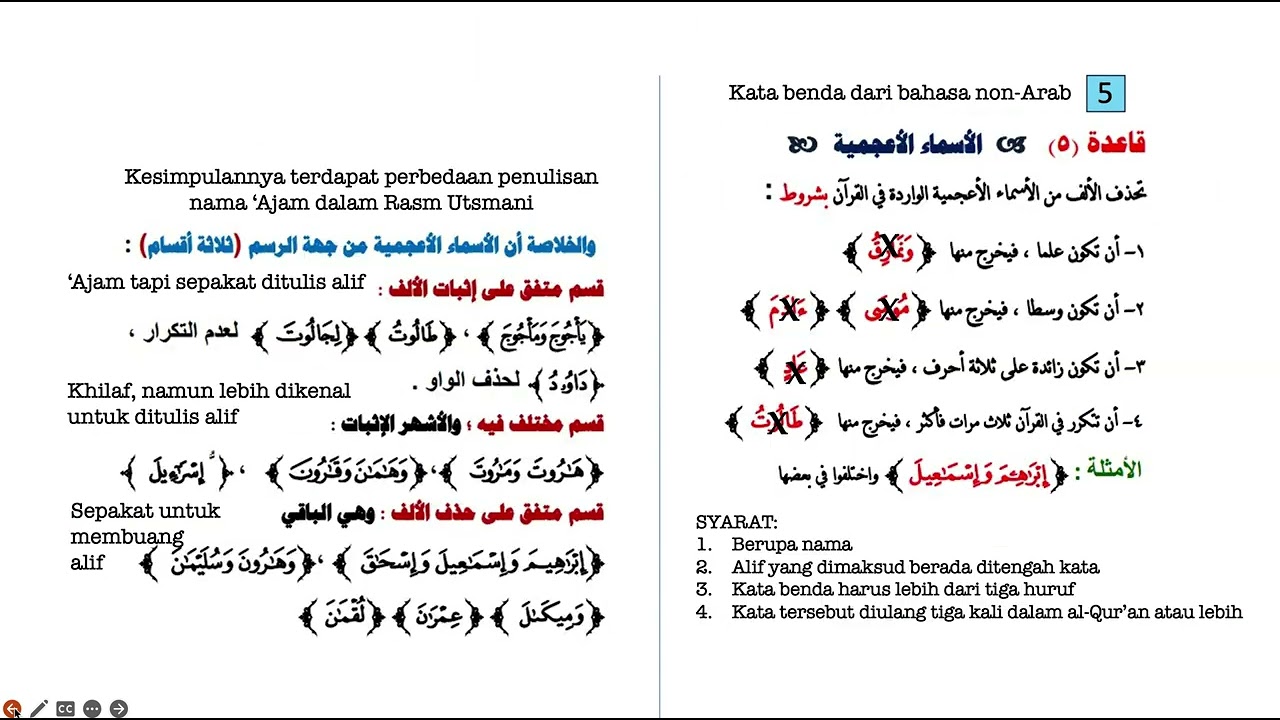 Kata benda dari bahasa non-Arab 5
قاعدة (٥) الأسماء الأعجمية
تحذف الألف من الأسماء الأعجمية الواردة في القرآن بشروط :
١- أن تكون علما ، فيخرج منها ﴿وَنَمَارِقُ﴾ X
٢- أن تكون وسطا ، فيخرج منها ﴿مُوسَى﴾ X ﴿ءَادَمَ﴾ X
٣- أن تكون زائدة على ثلاثة أحرف ، فيخرج منها ﴿عَادٍ﴾ X
٤- أن تتكرر في القرآن ثلاث مرات فأكثر ، فيخرج منها ﴿طَالُوتُ﴾ X
الأمثلة : ﴿إِبْرَٰهِـۧمَ وَإِسْمَٰعِيلَ﴾ واختلفوا في بعضها
SYARAT:
1. Berupa nama
2. Alif yang dimaksud berada ditengah kata
3. Kata benda harus lebih dari tiga huruf
4. Kata tersebut diulang tiga kali dalam al-Qur’an atau lebih
Kesimpulannya terdapat perbedaan penulisan
nama ‘Ajam dalam Rasm Utsmani
والخلاصة أن الأسماء الأعجمية من جهة الرسم (ثلاثة أقسام) :
‘Ajam tapi sepakat ditulis alif
قسم متفق على إثبات الألف :
﴿يَأْجُوجَ وَمَأْجُوجَ﴾ ، ﴿طَالُوتُ﴾ ﴿لِجَالُوتَ﴾ لعدم التكرار ،
﴿دَاوُۥدُ﴾ لحذف الواو .
Khilaf, namun lebih dikenal
untuk ditulis alif
قسم مختلف فيه ؛ والأشهر الإثبات :
﴿هَٰرُوتَ وَمَٰرُوتَ﴾ ، ﴿وَهَٰمَٰنَ وَقَٰرُونَ﴾ ، ﴿إِسْرَٰٓءِيلَ﴾
Sepakat untuk
membuang
alif
قسم متفق على حذف الألف : وهي الباقي
﴿إِبْرَٰهِيمَ وَإِسْمَٰعِيلَ وَإِسْحَٰقَ﴾ ، ﴿وَهَٰرُونَ وَسُلَيْمَٰنَ﴾
﴿وَمِيكَىٰلَ﴾ ﴿عِمْرَٰنَ﴾ ﴿لُقْمَٰنَ﴾
CC